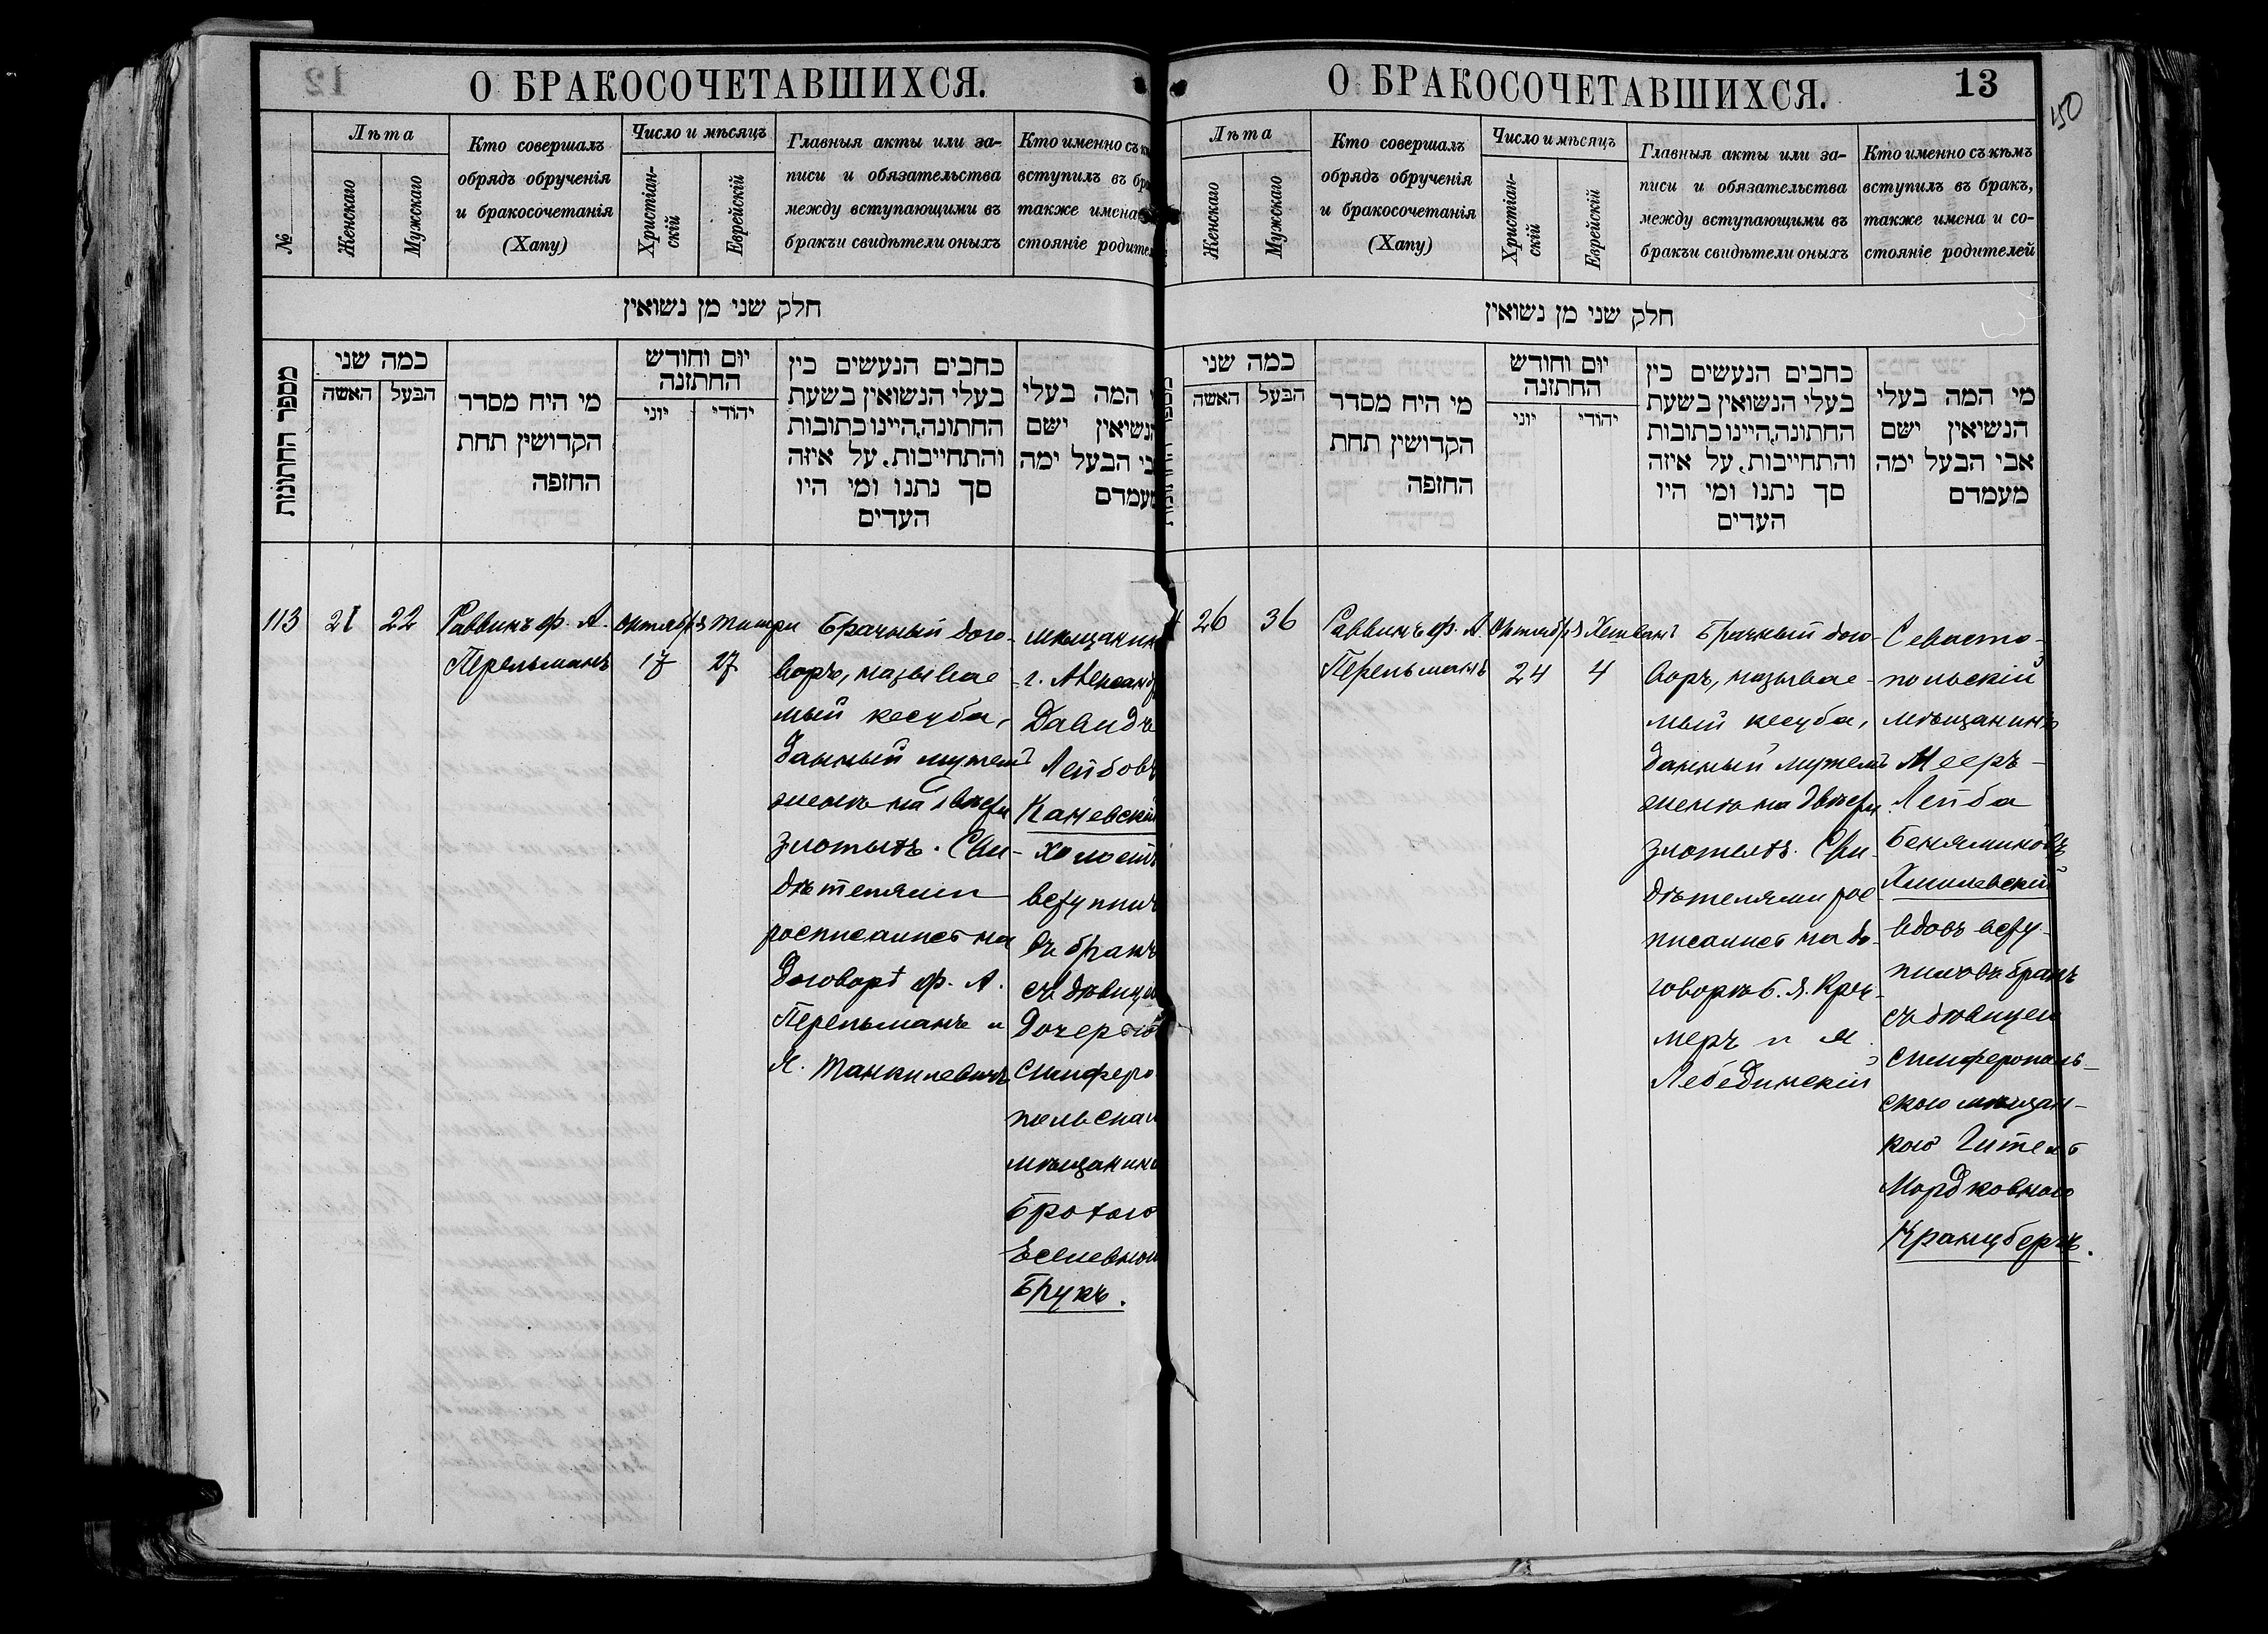 О БРАКОСОЧЕТАВШИХСЯ.
№
Лѣта
Женскаго
Мужскаго
Кто совершалъ
обрядъ обрученія
и бракосочетанія
(Хапу)
Число и мѣсяцъ
Христіан-
скій
Еврейскій
Главныя акты или за-
писи и обязательства
между вступающими въ
бракъи свидѣтели оныхъ
Кто именно съ
вступилъ въ бра
также имена
стояніе родите
חלק שני מן נשואין
מספר החתונות
כמה שני
האשה
הבעל
מי היח מסדר
הקדושין תחת
החזפה
יום וחודש
החתזנה
יוני
יהודי
כחבים הנעשים כין
בעלי הנשואין בשעת
החתונה,היינו כתובות
והתחייבות, על איזה
סך נתנו ומי היו
העדים
המה בעלי
הנשיאין ישם
בי הבעל ימה
מעמדם
113
21
22
Раввинъ Ф. А.
Перельманъ
Октября
17
Тишри
27
Брачный дого-
воръ, называе-
мый кесуба,
данный мужемъ
женѣ на двѣсти
злотыхъ. Сви-
дѣтелями
росписались на
договорѣ Ф. А.
Перельманъ и
Я. Танкилевичъ
мѣщанин
г. Александр
Давидъ
Лейбовъ
Каневскій
холостъ
вступилъ
въ бракъ
съ дѣвицей
дочерью
симферо-
польскаго
мѣщанина
Брохою
Брукъ.
О БРАКОСОЧЕТАВШИХСЯ.
13
50
Лѣта
Женскаго
Мужскаго
Кто совершалъ
обрядъ обрученія
и бракосочетанія
(Хапу)
Число и мѣсяцъ
Христіан-
скій
Еврейскій
Главныя акты или за-
писи и обязательства
между вступающими въ
бракъи свидѣтели оныхъ
Кто именно съ кѣмъ
вступилъ въ бракъ,
также имена и со-
стояніе родителей
חלק שני מן נשואין
כמה שני
האשה
הבעל
מי היח מסדר
הקדושין תחת
החזפה
יום וחודש
החתזנה
יוני
יהודי
כחבים הנעשים כין
בעלי הנשואין בשעת
החתונה,היינו כתובות
והתחייבות, על איזה
סך נתנו ומי היו
העדים
מי המה בעלי
הנשיאין ישם
אבי הבעל ימה
מעמדם
26
36
Раввинъ Ф. А.
Перельманъ
Октября
24
Хешванъ
4
Брачный дого-
воръ, называе-
мый кесуба,
данный мужемъ
женѣ на двѣсти
злотыхъ. Сви-
дѣтелями рос-
писались на до-
говорѣ Б. Я. Кре-
меръ и Я.
Лебединскій
Севасто-
польскій
мѣщанинъ
Мееръ-
Лейба
Беняминовъ
Хмилевскій
вдовъ всту-
пилъ въ бракъ
съ дѣвицей
симферополь-
скою мѣщан-
кою Гителъ
Мордковною
Кранцбергъ.